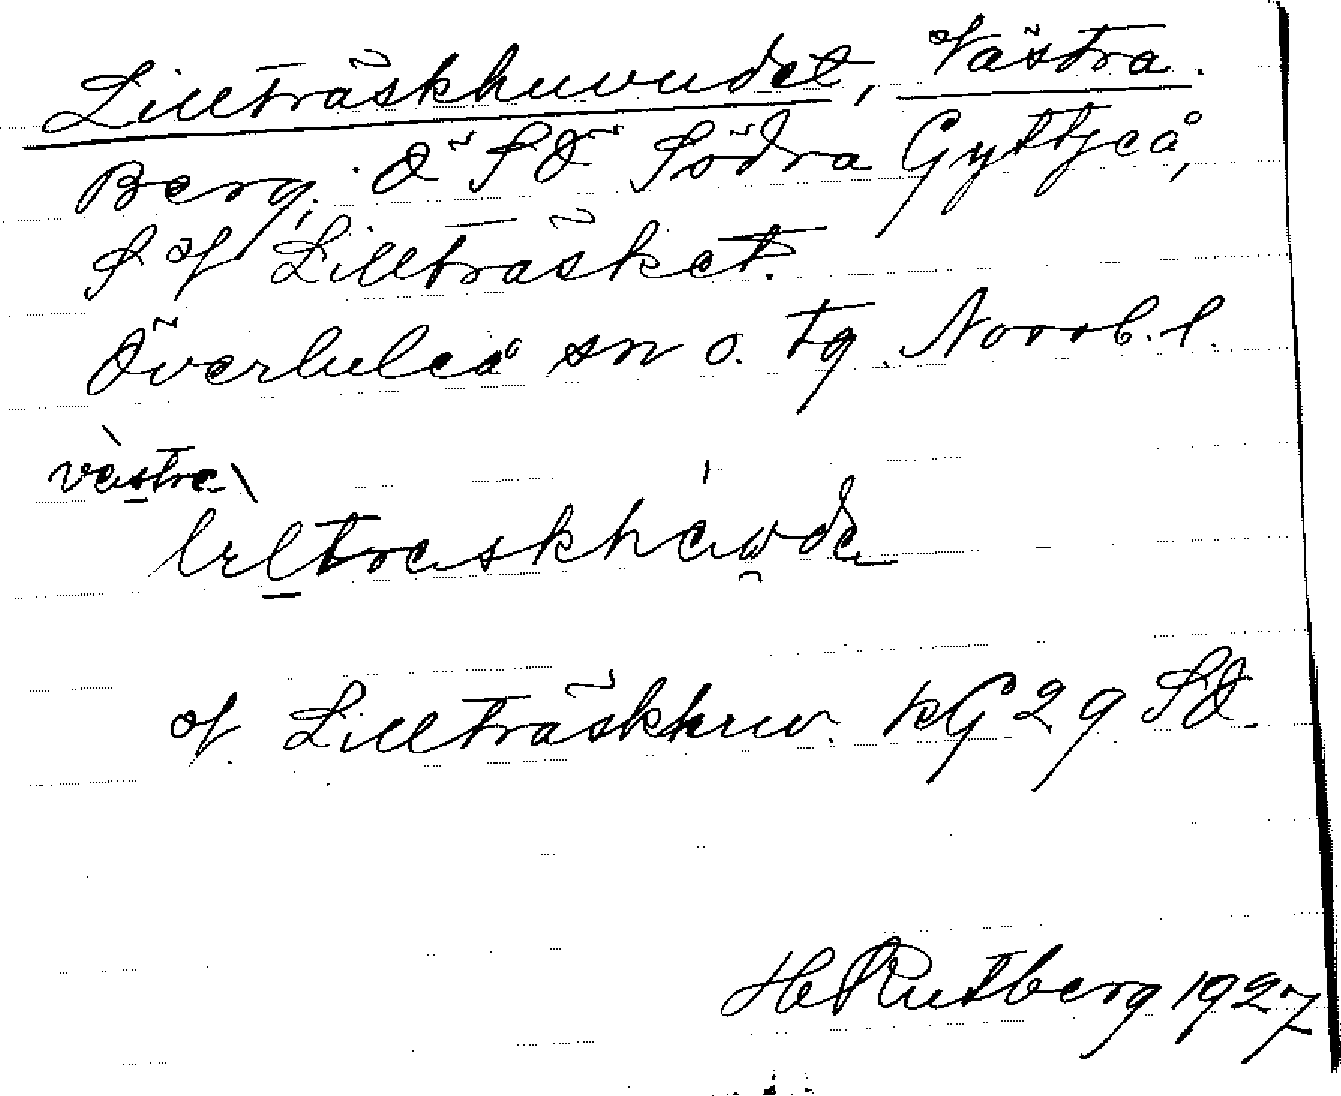 Lillträskhuvudet, Västra.
Berg. Ö SÖ Södra Gyttjeå,
S V Lillträsket.
Överluleå sn o. tg. Norrb. l.
västra
liltraskhavda
V. Lillträskhuv. kG 29 SÖ
H Rutberg 1927